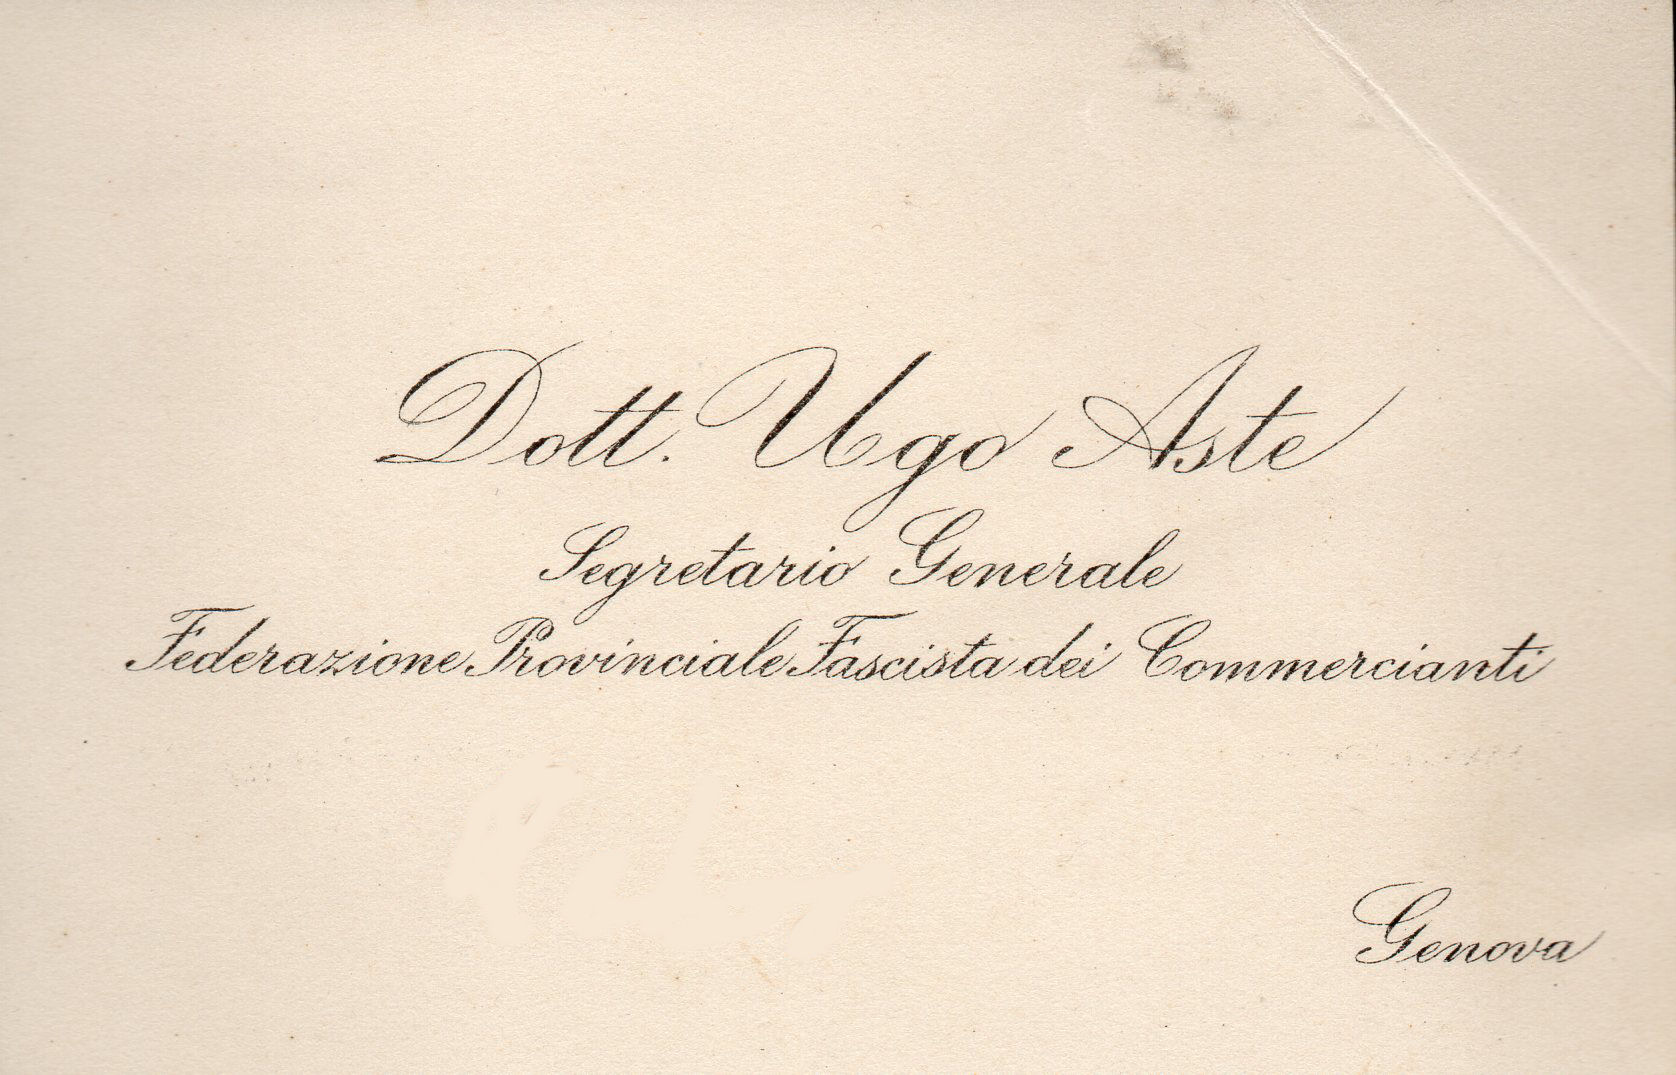 Dott. Ugo Aste
Segretario Generale
Federazione Provinciale Fascista dei Commercianti
Genova